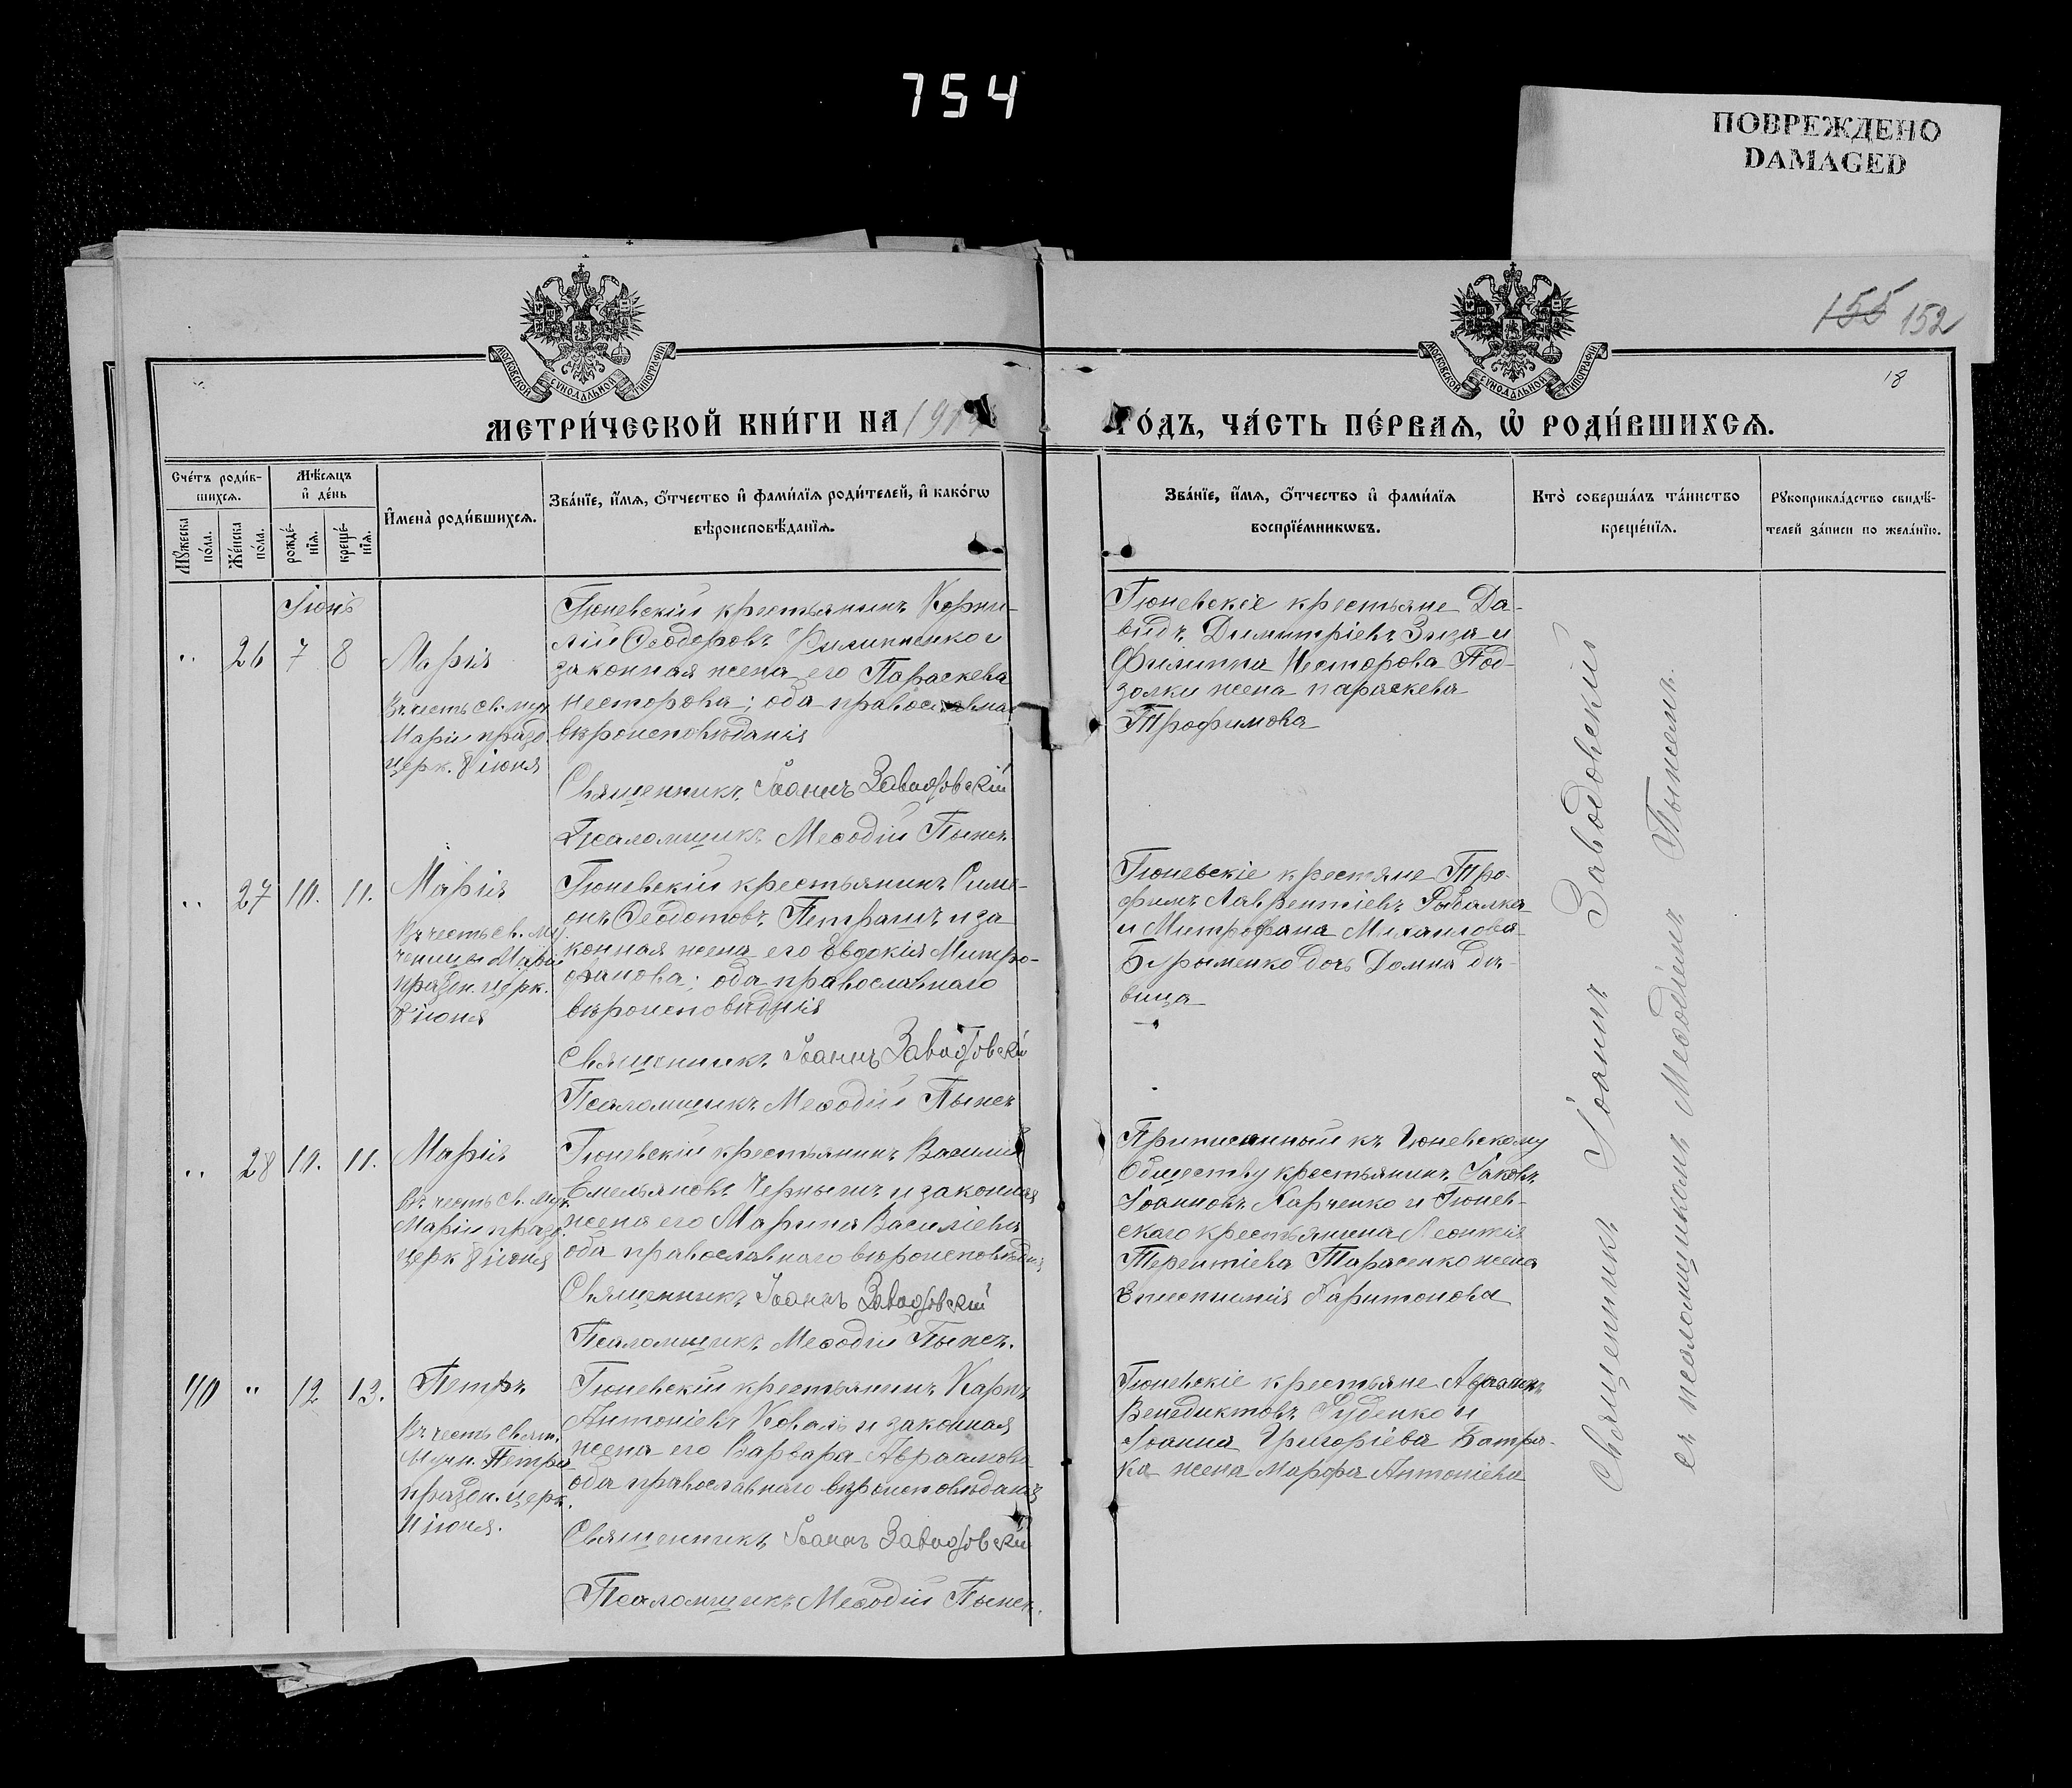 754
ПОВРЕЖДЕНО
DAMAGED
155 152
18
МОСКОВСКОЙ СѴНОДАЛЬНОЙ ТИПОГРАФІИ
МОСКОВСКОЙ СѴНОДАЛЬНОЙ ТИПОГРАФІИ
МЕТРИ́ЧЕСКОЙ КНИ́ГИ НА 191
ГО́ДЪ, ЧА́СТЬ ПЕ́РВАѦ, Ѡ҆ РОДИ́ВШИХСѦ.
Сче́тъ роди́в-
шихсѧ.
Мѣ́сѧцъ
и҆ де́нь
Мꙋ́жеска
по́ла.
Же́нска
по́ла.
рожде́-
нїѧ.
креще́-
нїѧ.
И҆мена̀ роди́вшихсѧ.
Зва́нїе, и҆́мѧ, ѻ҆́тчество и҆ фами́лїѧ роди́телей, и҆ како́гѡ
вѣроисповѣ́данїѧ.
Зва́нїе, и҆́мѧ, ѻ҆́тчество и҆ фами́лїѧ
воспрїе́мникѡвъ.
Кто̀ соверша́лъ та́инство
креще́нїѧ.
Рꙋкоприкла́дство свидѣ́-
телей за́писи по жела́нїю.
Іюнь
" 26 7 8 Марія
Въ честь св. муч.
Маріи празд.
церк. 8 іюня
Гюневскій крестьянинъ Корни-
лій Ѳеодоровъ Филипенко и
законная жена его Параскева
Несторова; оба православна
вѣроисповѣданія
Священникъ Іоаннъ Заводовскій
Псаломщикъ Меѳодій Пынех
Гюневскіе крестьяне Да-
видъ Димитріевъ Зыза и
Филиппа Несторова Под-
золки жена параскева
Трофимова
" 27 10. 11. Марія
Въ честь св. му-
ченицы Маріи
празн. церк.
8 іюня
Гюневскій крестьянинъ Симе-
онъ Ѳеодотовъ Петрашъ и за
конная жена его Евдокія Митро-
фанова; оба православнаго
вѣроисповѣднія
Священникъ Іоаннъ Заводовскій
Псаломщикъ Меѳодій Пынех
Гюневскіе крестяне Тро-
фимъ Лаврентіевъ Рыбалка
и Митрофана Михаилова
Бурыменко дочь Домна дѣ-
вица
" 28 10. 11. Марія
Въ честь св. Муч.
Маріи празд.
церк 8 іюня
Гюневскій крестьянинъ Василій
Емельяновъ Чернышъ и законная
жена его Марина Василіева
оба православнаго вѣроисповѣдія
Священникъ Іоаннъ Заводовскій
Псаломщикъ Меѳодій Пынех.
Приписанный къ Гюневскому
Обществу крестьянинъ Іаковъ
Іоанновъ Харченко и Гюнев-
скаго крестьянина Леонтія
Терентіева Тарасенко жена
Харитонова
40 " 12 13. Петръ
Въ честь Свят.
Муч. Петра
празн. церк.
іюня.
Гюневскій крестьянинъ Карпъ
Антоніевъ Коваль и законная
жена его Варвара Авраамова
оба православнаго вѣроисповѣданія
Священникъ Іоаннъ Заводовскій
Псаломщикъ Меѳодій Пынех.
Гюневскіе крестьяне
Венедиктовъ Руденко и
Іоанна Григоріева Батра-
ка жена Марфа Антоніева
Священникъ Іоаннъ Заводовскій
съ псаломщикомъ Меѳодіемъ